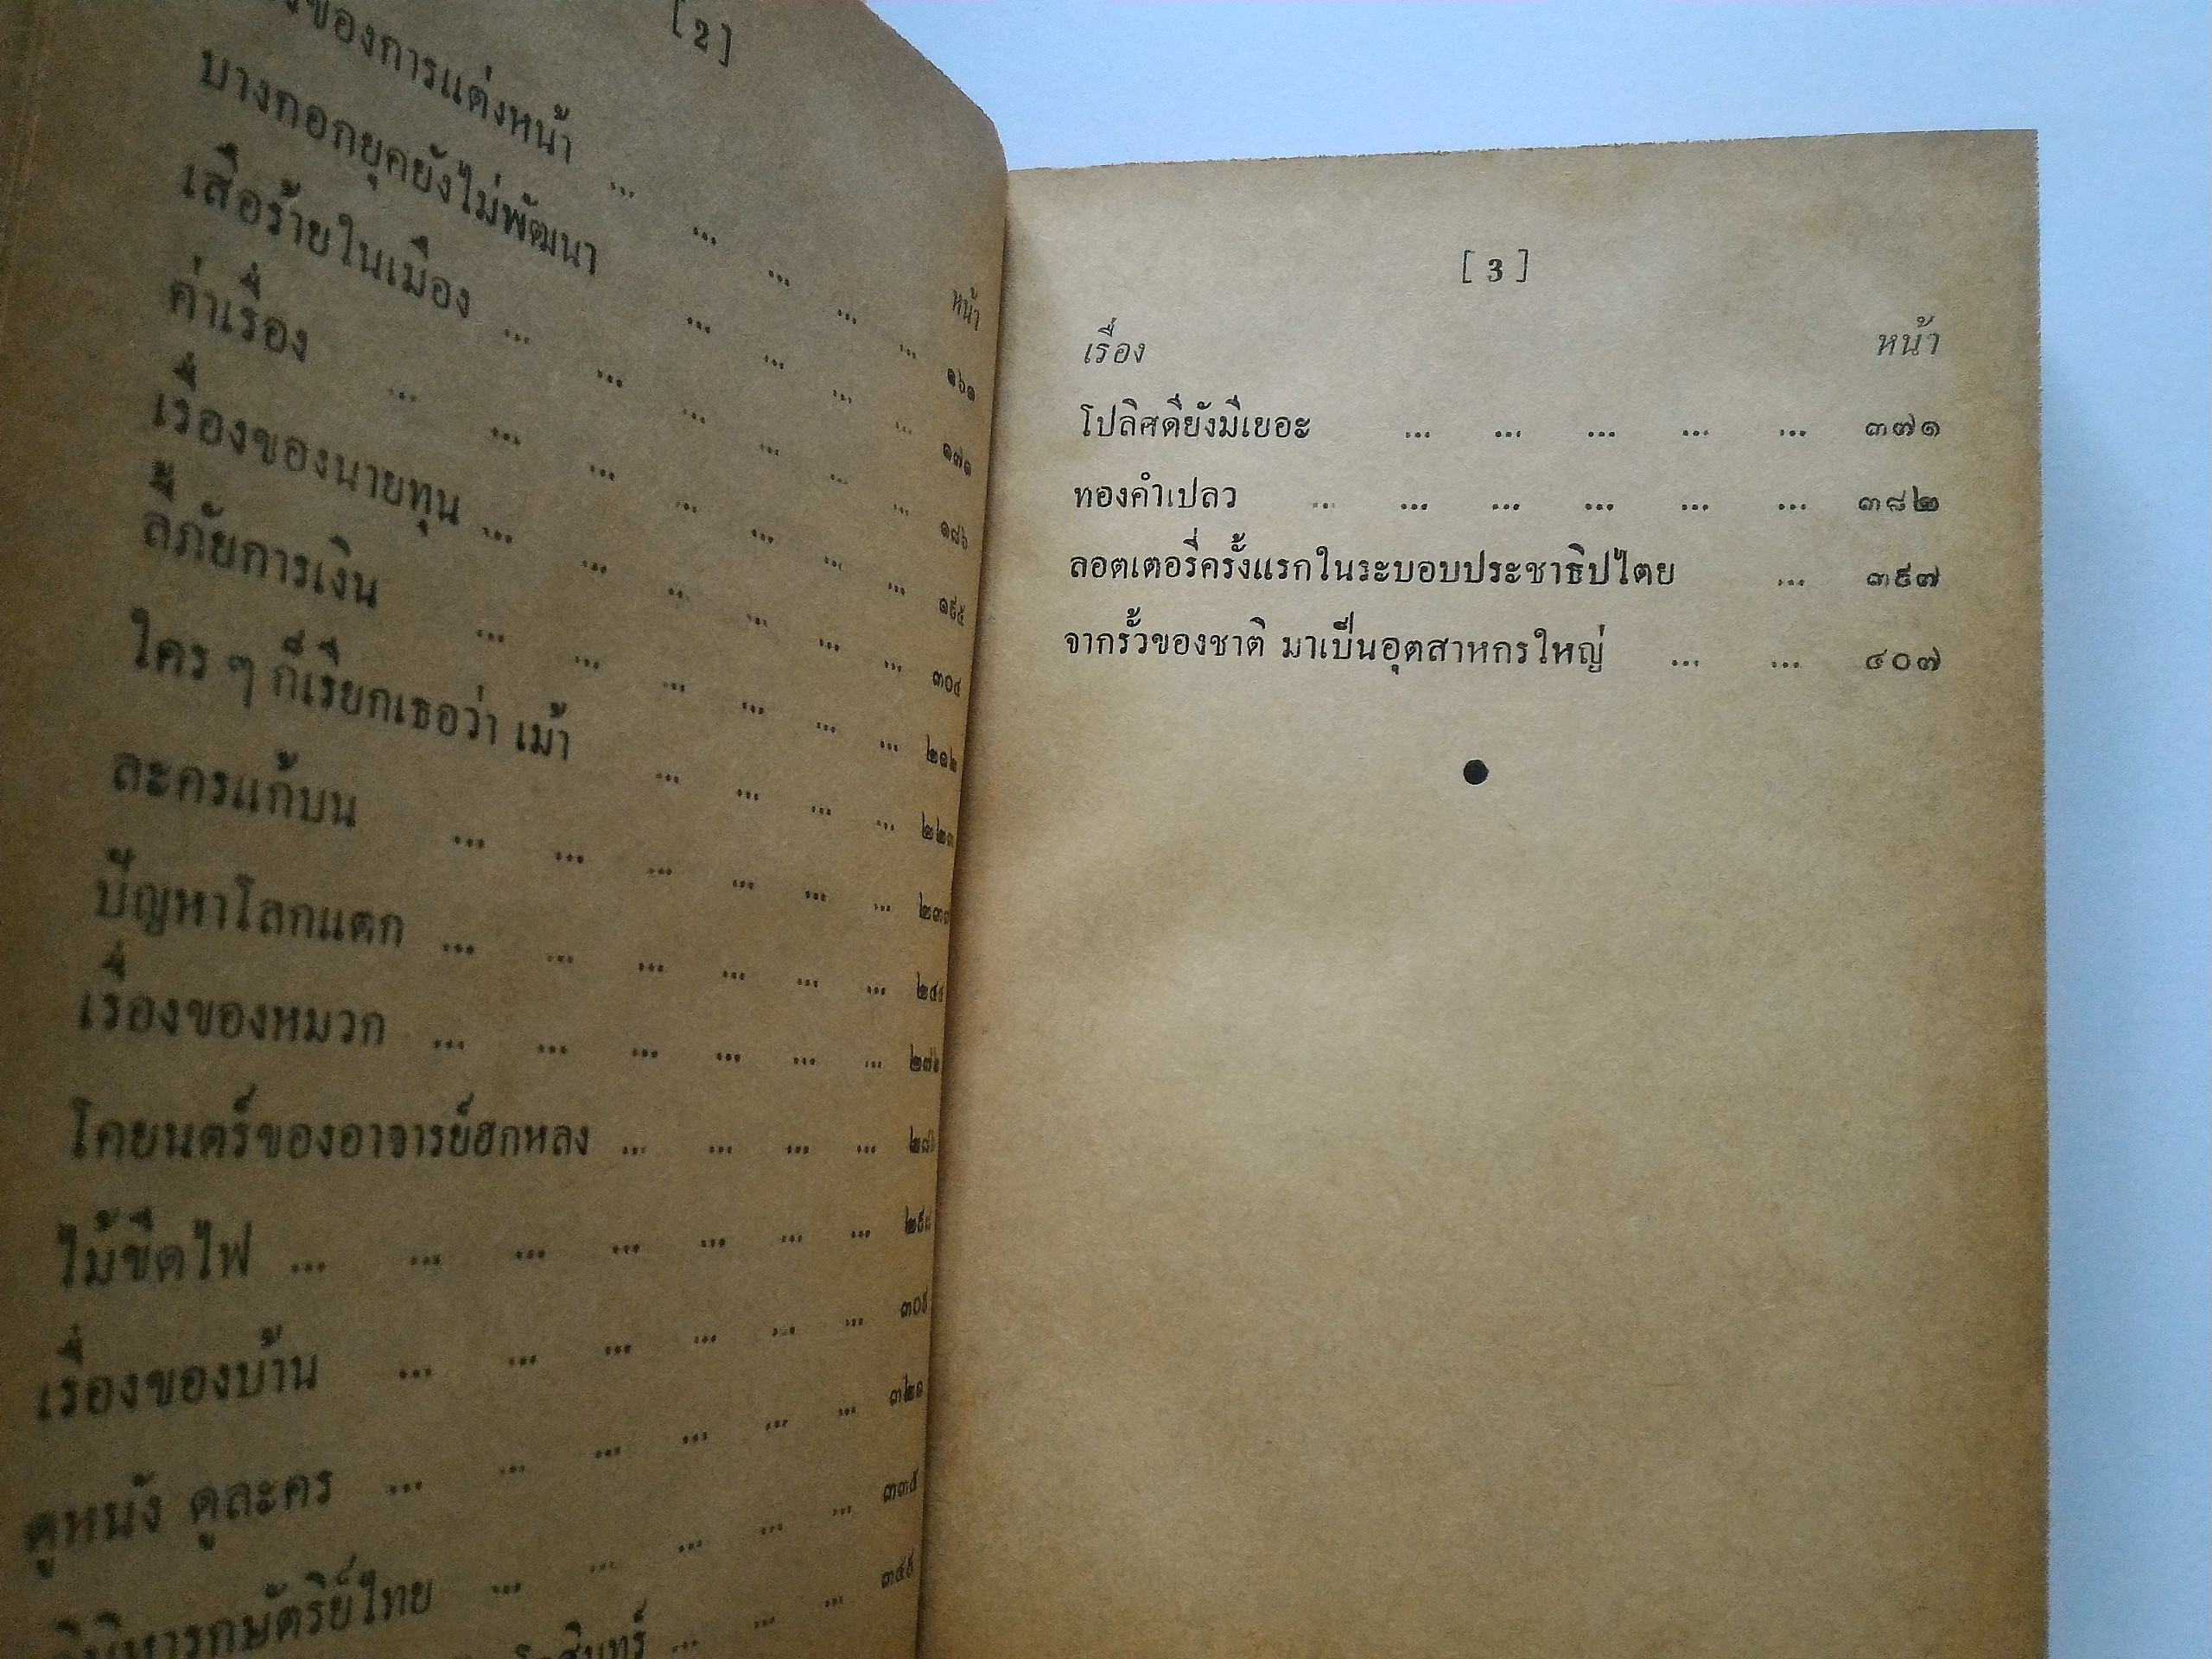 [ 2 ]
ของการแต่งหน้า ... ... ... ... ...
หน้า
บางกอกยุคยังไม่พัฒนา ... ... ... ... ๑๖๑
เสือร้ายในเมือง ... ... ... ... ... ๑๗๑
ค่าเรื่อง ... ... ... ... ... ... ๑๘๖
เรื่องของนายทุน ... ... ... ... ... ๑๙๕
ลี้ภัยการเงิน ... ... ... ... ... ๓๐๔
ใคร ๆ ก็เรียกเธอว่า เม้า ... ... ... ... ๒๑๒
ละครแก้บน ... ... ... ... ... ... ๒๒๓
ปัญหาโลกแตก ... ... ... ... ... ...
เรื่องของหมวก ... ... ... ... ... ...
โคยนตร์ของอาจารย์ฮกหลง ... ... ... ...
ไม้ขีดไฟ ... ... ... ... ... ... ...
เรื่องของบ้าน ... ... ... ... ... ...
ดูหนัง ดูละคร ... ... ... ... ... ... ๓๒๑
กษัตริย์ไทย ... ... ... ... ...
... ... ...
[ 3 ]
เรื่อง หน้า
โปลิศดียังมีเยอะ ... ... ... ... ... ๓๗๑
ทองคำเปลว ... ... ... ... ... ... ๓๘๒
ลอตเตอรี่ครั้งแรกในระบอบประชาธิปไตย ... ๓๙๗
จากรั้วของชาติ มาเป็นอุตสาหกรใหญ่ ... ... ๔๐๗